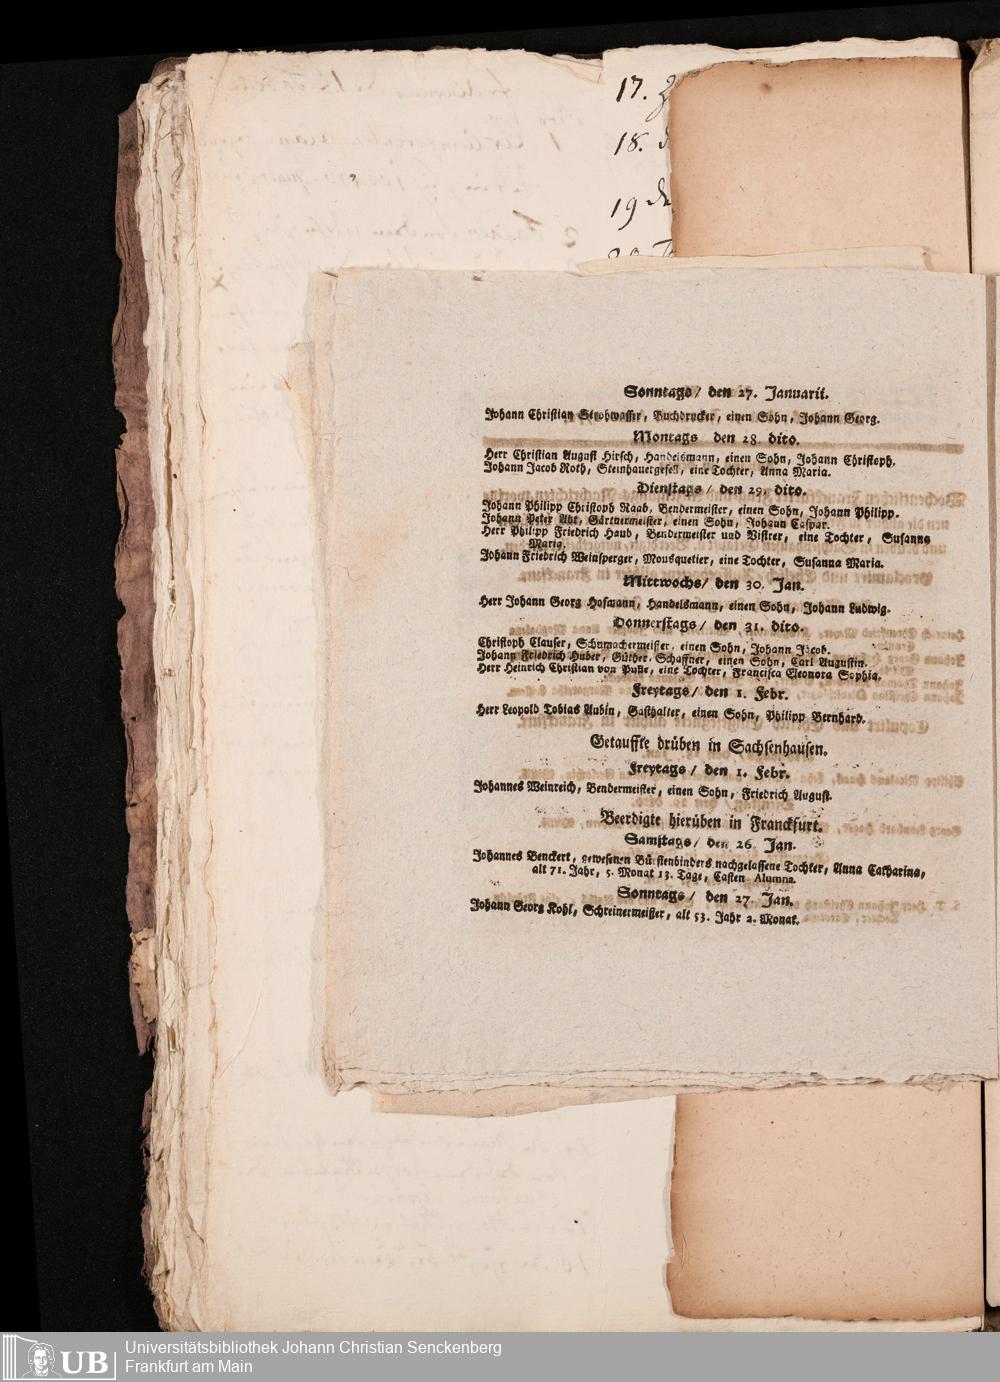 17.
18.
19
Sonntags / den 27. Januarii.
Johann Christian Strohwasser, Buchdrucker, einen Sohn, Johann Georg.
Montags den 28. dito.
Herr Christian August Hirsch, Handelsmann, einen Sohn, Johann Christoph.
Johann Jacob Roth, Steinhauergesell, eine Tochter, Anna Maria.
Dienstags / den 29. dito.
Johann Philipp Christoph Raab, Bendermeister, einen Sohn, Johann Philipp.
Johann Peter Abt, Gärtnermeister, einen Sohn, Johann Caspar.
Herr Philipp Friedrich Haub, Bendermeister und Visirer, eine Tochter, Susanna
Maria.
Johann Friedrich Weinsperger, Mousquetier, eine Tochter, Susanna Maria.
Mittwochs / den 30. Jan.
Herr Johann Georg Hofmann, Handelsmann, einen Sohn, Johann Ludwig.
Donnerstags / den 31. dito.
Christoph Clauser, Schumachermeister, einen Sohn, Johann Jacob.
Johann Friedrich Huber, Güther-Schaffner, einen Sohn, Carl Augustin.
Herr Heinrich Christian von eine Tochter, Francisca Eleonora Sophia.
Freytags / den 1. Febr.
Herr Leopold Tobias Aubin, Gasthalter, einen Sohn, Philipp Bernhard.
Getauffte drüben in Sachsenhausen.
Freytags / den 1. Febr.
Johannes Weinreich, Bendermeister, einen Sohn, Friedrich August.
Beerdigte hierüben in Franckfurt.
Samstags / den 26. Jan.
Johannes Benckert, gewesenen Bürstenbinders nachgelassene Tochter, Anna Catharina,
alt 71. Jahr, 5. Monat 13. Tage, Casten Alumna.
Sonntags / den 27. Jan.
Johann Georg Kohl, Schreinermeister, alt 53. Jahr 2. Monat.
UB
Universitätsbibliothek Johann Christian Senckenberg
Frankfurt am Main